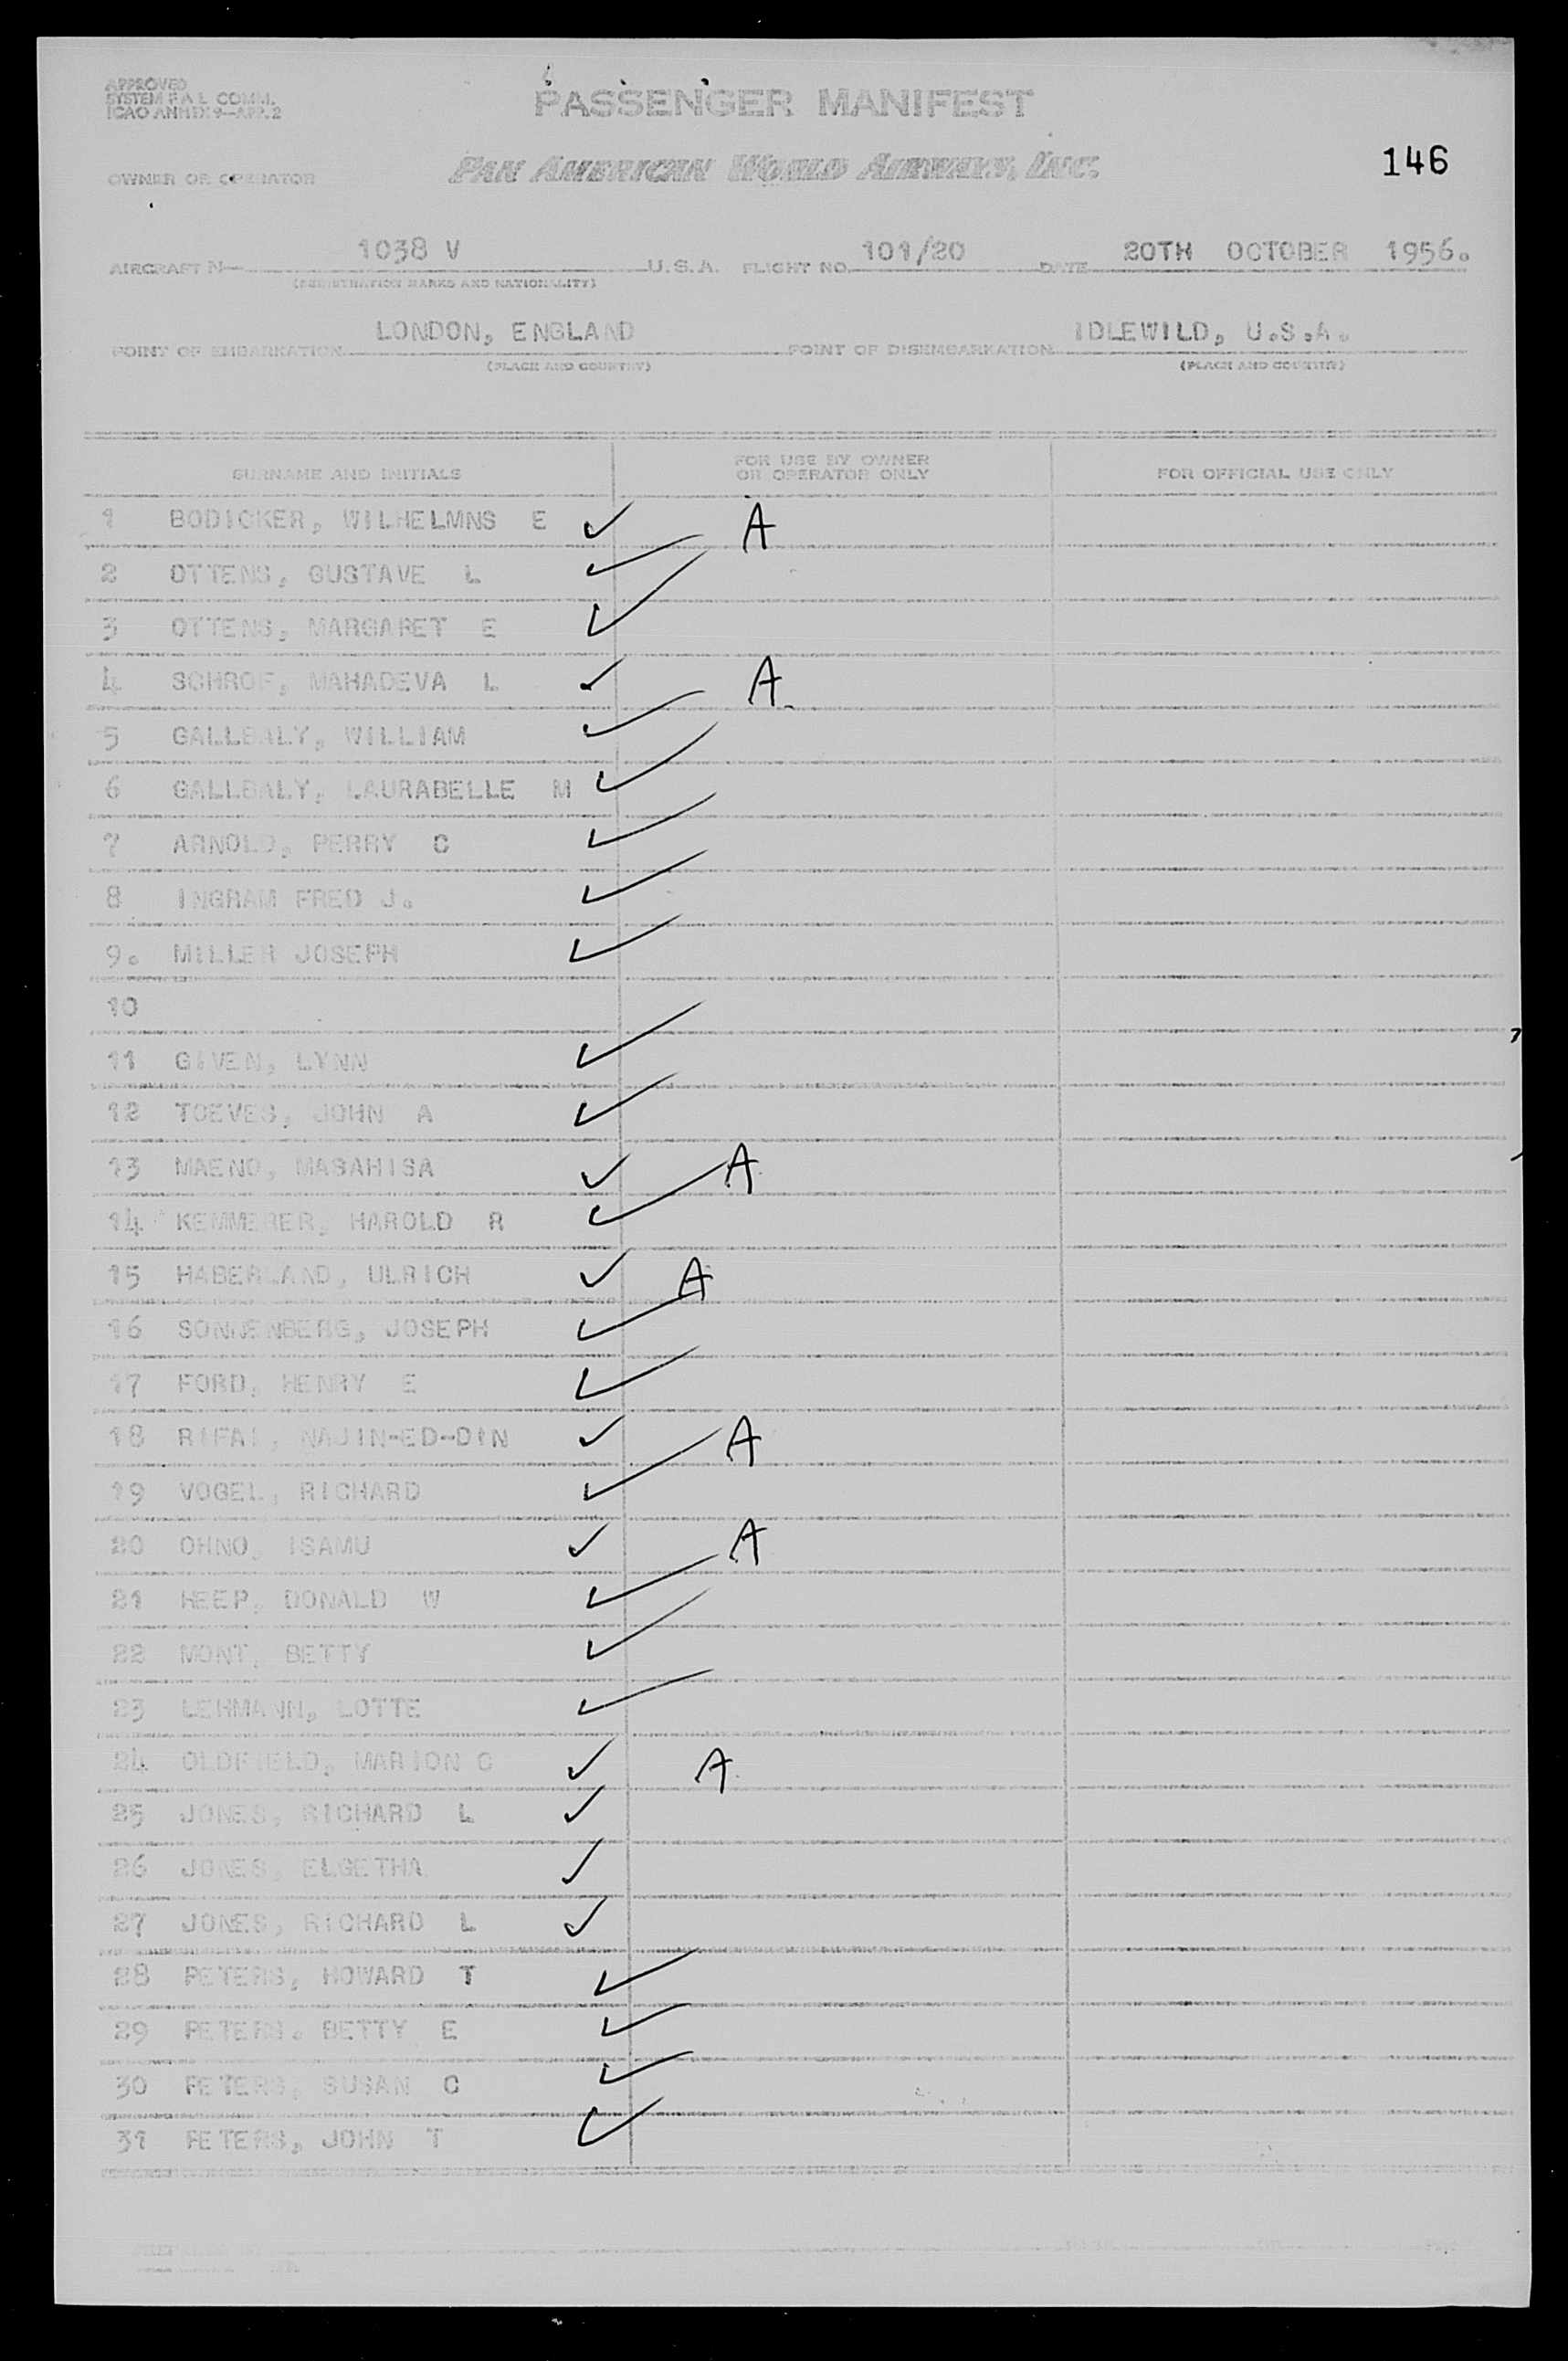 APPROVED
SYSTEM F.A.L. COMM.
ICAO ANNEX 9—APP. 2
PASSENGER MANIFEST
OWNER OR OPERATOR PAN AMERICAN WORLD AIRWAYS, INC.
146
AIRCRAFT N— 1038 V U.S.A. FLIGHT NO. 101/20 DATE 20TH OCTOBER 1956.
(REGISTRATION MARKS AND NATIONALITY)
POINT OF EMBARKATION LONDON, ENGLAND POINT OF DISEMBARKATION IDLEWILD, U.S.A.
(PLACE AND COUNTRY) (PLACE AND COUNTRY)
SURNAME AND INITIALS FOR USE BY OWNER OR OPERATOR ONLY FOR OFFICIAL USE ONLY
1 BODICKER, WILHELMNS E ✓ A
2 OTTENS, GUSTAVE L ✓
3 OTTENS, MARGARET E ✓
4 SCHROF, MAHADEVA L ✓ A
5 GALLBALY, WILLIAM ✓
6 GALLBALY, LAURABELLE M ✓
7 ARNOLD, PERRY C ✓
8 INGRAM FRED J. ✓
9. MILLER JOSEPH ✓
10
11 GIVEN, LYNN ✓
12 TOEVES, JOHN A ✓
13 MAENO, MASAHISA ✓ A
14 KEMMERER, HAROLD R ✓
15 HABERLAND, ULRICH ✓ A
16 SONNENBERG, JOSEPH ✓
17 FORD, HENRY E ✓
18 RIFAI, NAJIN-ED-DIN ✓ A
19 VOGEL, RICHARD ✓
20 OHNO, ISAMU ✓ A
21 HEEP, DONALD W ✓
22 MONT, BETTY ✓
23 LEHMANN, LOTTE ✓
24 OLDFIELD, MARION C ✓ A
25 JONES, RICHARD L ✓
26 JONES, ELGETHA ✓
27 JONES, RICHARD L ✓
28 PETERS, HOWARD T ✓
29 PETERS. BETTY E ✓
30 PETERS, SUSAN C ✓
31 PETERS, JOHN T ✓